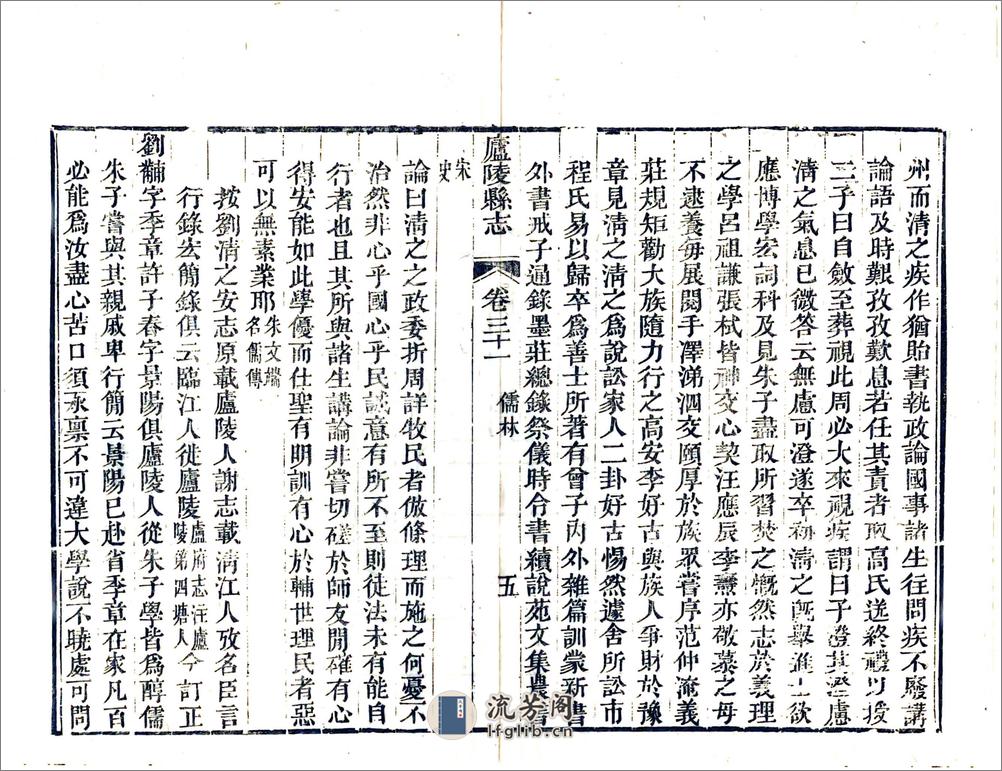 州而清之疾作猶貽書執政論國事諸生往問疾不廢講
論語及時艱孜孜歎息若任其責者取高氏送終禮以授
二子曰自斂至葬視此周必大來視疾謂曰子澄其澄慮
清之氣息已微答云無慮可澄遂卒初清之旣舉進士欲
應博學宏詞科及見朱子盡取所習焚之慨然志於義理
之學呂祖謙張栻皆神交心契汪應辰李燾亦敬慕之母
不逮養每展閱手澤涕泗交頤厚於族眾嘗序范仲淹義
莊規矩勸大族隨力行之高安李好古與族人爭財於豫
章見清之清之爲說訟家人二卦好古惕然遽舍所訟市
程氏易以歸卒爲善士所著有曾子內外雜篇訓蒙新書
外書戒子通錄墨莊總錄祭儀時令書續說苑文集農書
廬陵縣志 卷三十一 儒林 五
宋史
論曰清之之政委折周詳牧民者倣條理而施之何憂不
治然非心乎國心乎民誠意有所不至則徒法未有能自
行者也且其所與諸生講論非嘗切磋於師友閒確有心
得安能如此學優而仕聖有明訓有心於輔世理民者惡
可以無素業耶朱文端名儒傳
按劉清之安志原載廬陵人謝志載清江人攷名臣言
行錄宏簡錄俱云臨江人徙廬陵廬府志注廬陵第四塘人今訂正
劉黼字季章許子春字景陽俱廬陵人從朱子學皆爲醇儒
朱子嘗與其親戚卑行簡云景陽已赴省季章在家凡百
必能爲汝盡心苦口須永稟不可違大學說不曉處可問
流芳阁
lfglib.cn